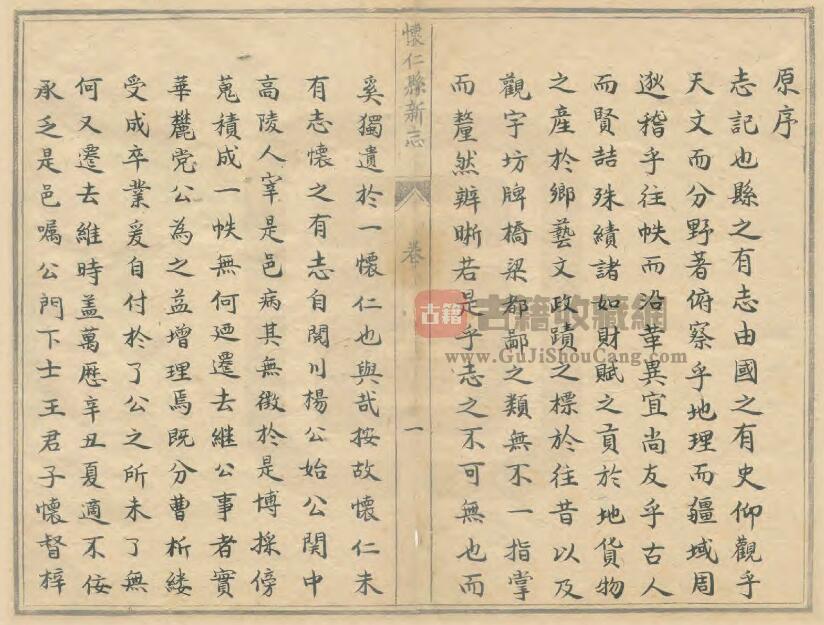 原序
志記也縣之有志由國之有史仰觀乎
天文而分野著俯察乎地理而疆域周
逖稽乎往帙而沿革異宜尚友乎古人
而賢喆殊績諸如財賦之貢於地貨物
之產於鄉藝文政蹟之標於往昔以及
觀宇坊牌橋梁都鄙之類無不一指掌
而釐然辨晰若是乎志之不可無也而
懷仁縣新志
卷
一
奚獨遺於一懷仁也與哉按故懷仁未
有志懷之有志自関川楊公始公関中
高陵人宰是邑病其無徵於是博採傍
蒐積成一帙無何迺遷去繼公事者實
華麓党公為之益增理焉既分曹析縷
受成卒業爰自付於了公之所未了無
何又遷去維時盖萬厯辛丑夏適不佞
承乏是邑囑公門下士王君子懷督梓
古籍
古籍收藏網
www.GuJiShouCang.com